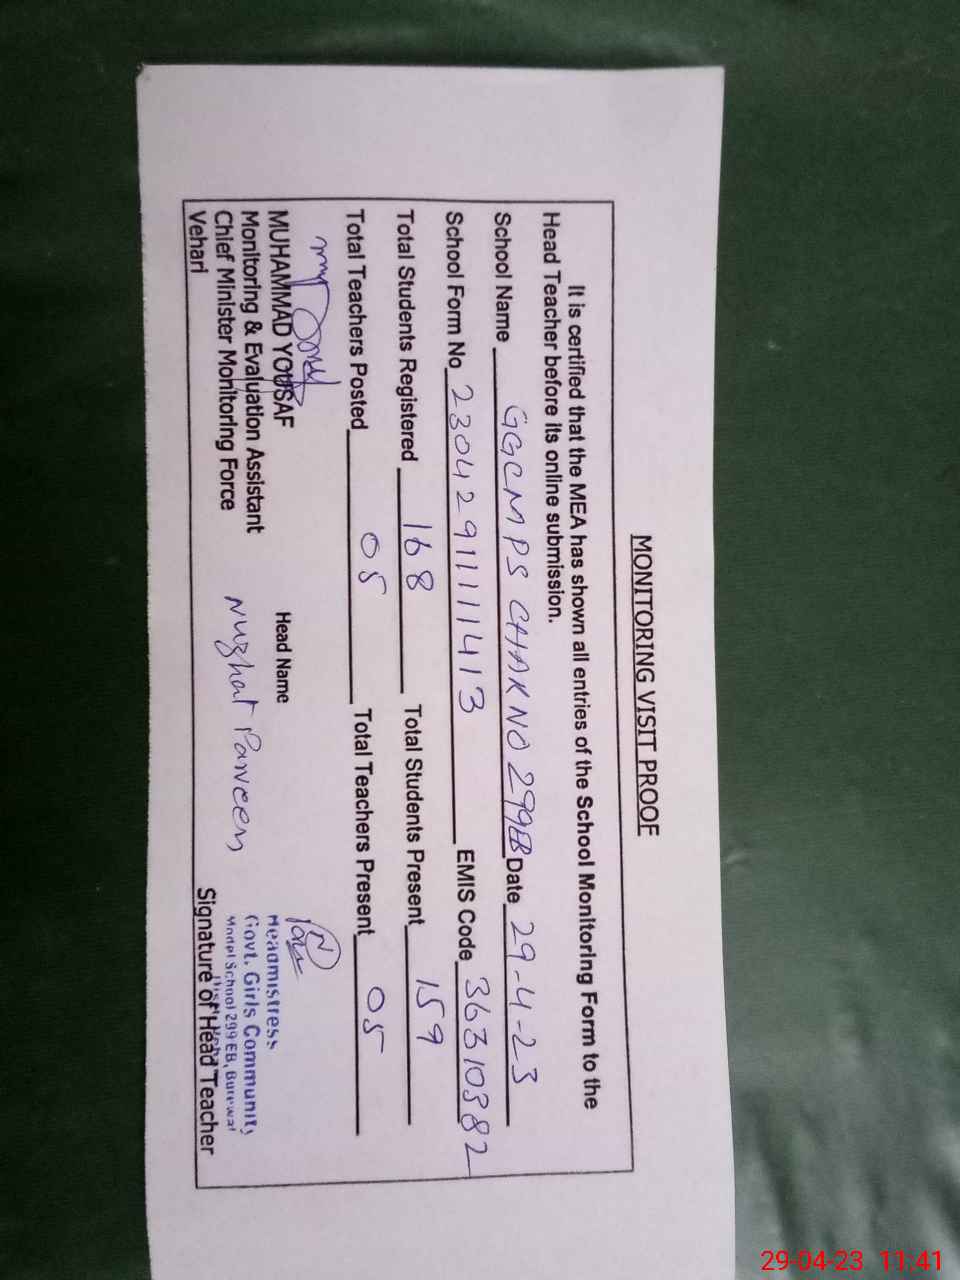 MONITORING VISIT PROOF
It is certified that the MEA has shown all entries of the School Monitoring Form to the
Head Teacher before its online submission.
School Name GGCMPS CHAK NO 299EB Date 29-4-23
School Form No 230429111413 EMIS Code 36310382
Total Students Registered 168 Total Students Present 159
Total Teachers Posted 05 Total Teachers Present 05
MUHAMMAD YOUSAF
Monitoring & Evaluation Assistant
Chief Minister Monitoring Force
Vehari
Head Name
Nuzhat Parveen
Headmistress
Govt. Girls Community
Model School 299 EB, Burewal
Signature of Head Teacher
29-04-23 11:41